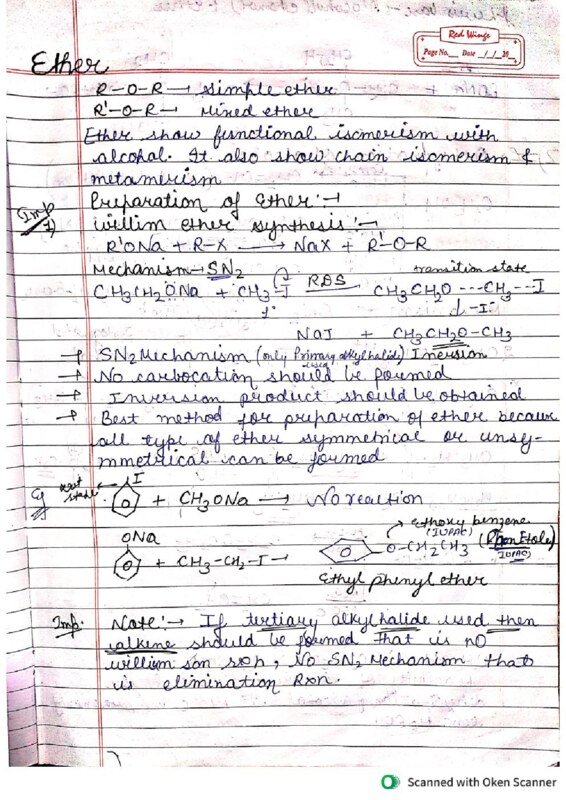 Red Wings
Page No.___ Date __/__/20__
Ether
R-O-R → simple ether
R'-O-R → Mixed ether
Ether show functional isomerism with
alcohal. It also show chain isomerism &
metamerism
Preparation of Ether :→
Imp
1) Willim ether synthesis :→
R'ONa + R-X ⟶ NaX + R'-O-R
Mechanism → SN2
transition state
CH3CH2ONa + CH3-I RDS CH3CH2O ---CH3--I
↓ -I:
NaI + CH3CH2O-CH3
→ SN2 Mechanism (only Primary alkylhalid) Inersion
used
→ No carbocation should be formed
→ Inversion product should be obtained
→ Best method for preparation of ether because
all type of ether symmetrical or unsy-
mmetrical can be formed
Eg
I
+ CH3ONa ⟶ No reaction
Ethoxy benzene
(IUPAC)
ONa
+ CH3-CH2-I → O-CH2CH3
(IUPAC)
Ethyl phenyl ether
Imp. Note :→ If tertiary alkylhalide used then
alkene should be formed that is no
william son rxn, No SN2 Mechanism that
is elimination Rxn.
Scanned with Oken Scanner